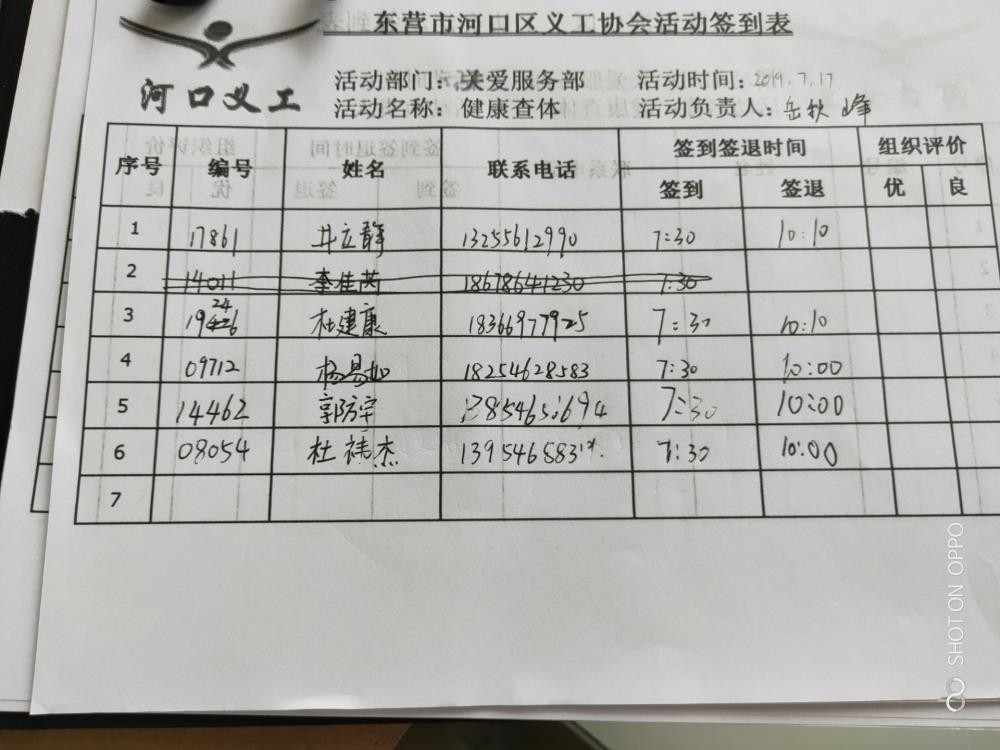 东营市河口区义工协会活动签到表
河口义工
活动部门：关爱服务部 活动时间：2019.7.17
活动名称： 健康查体 活动负责人：岳秋峰
序号 编号 姓名 联系电话 签到签退时间 组织评价
签到 签退 优 良
1 17861 井立静 13255612990 7:30 10:10
2 14011 李佳芮 18678641230 7:30
3 19246 杜建康 18366977925 7:30 10:10
4 09712 杨易如 18254628583 7:30 10:00
5 14462 郭防宇 7:30 10:00
6 08054 杜祎杰 7:30 10:00
7
SHOT ON OPPO